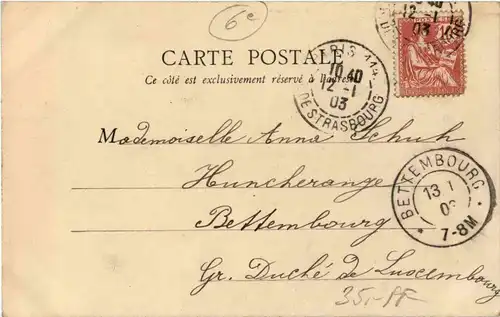 6e
CARTE POSTALE
Ce côté est exclusivement réservé à l'adresse
PARIS 114
10 40
12 -1
03
DE STRASBOURG
12 -1
03
POSTES
10
Mademoiselle Anna Schuh
Huncherange
Bettembourg
Gr. Duché de Luxembourg
BETTEMBOURG
13 1
03
7-8M
35.- FF